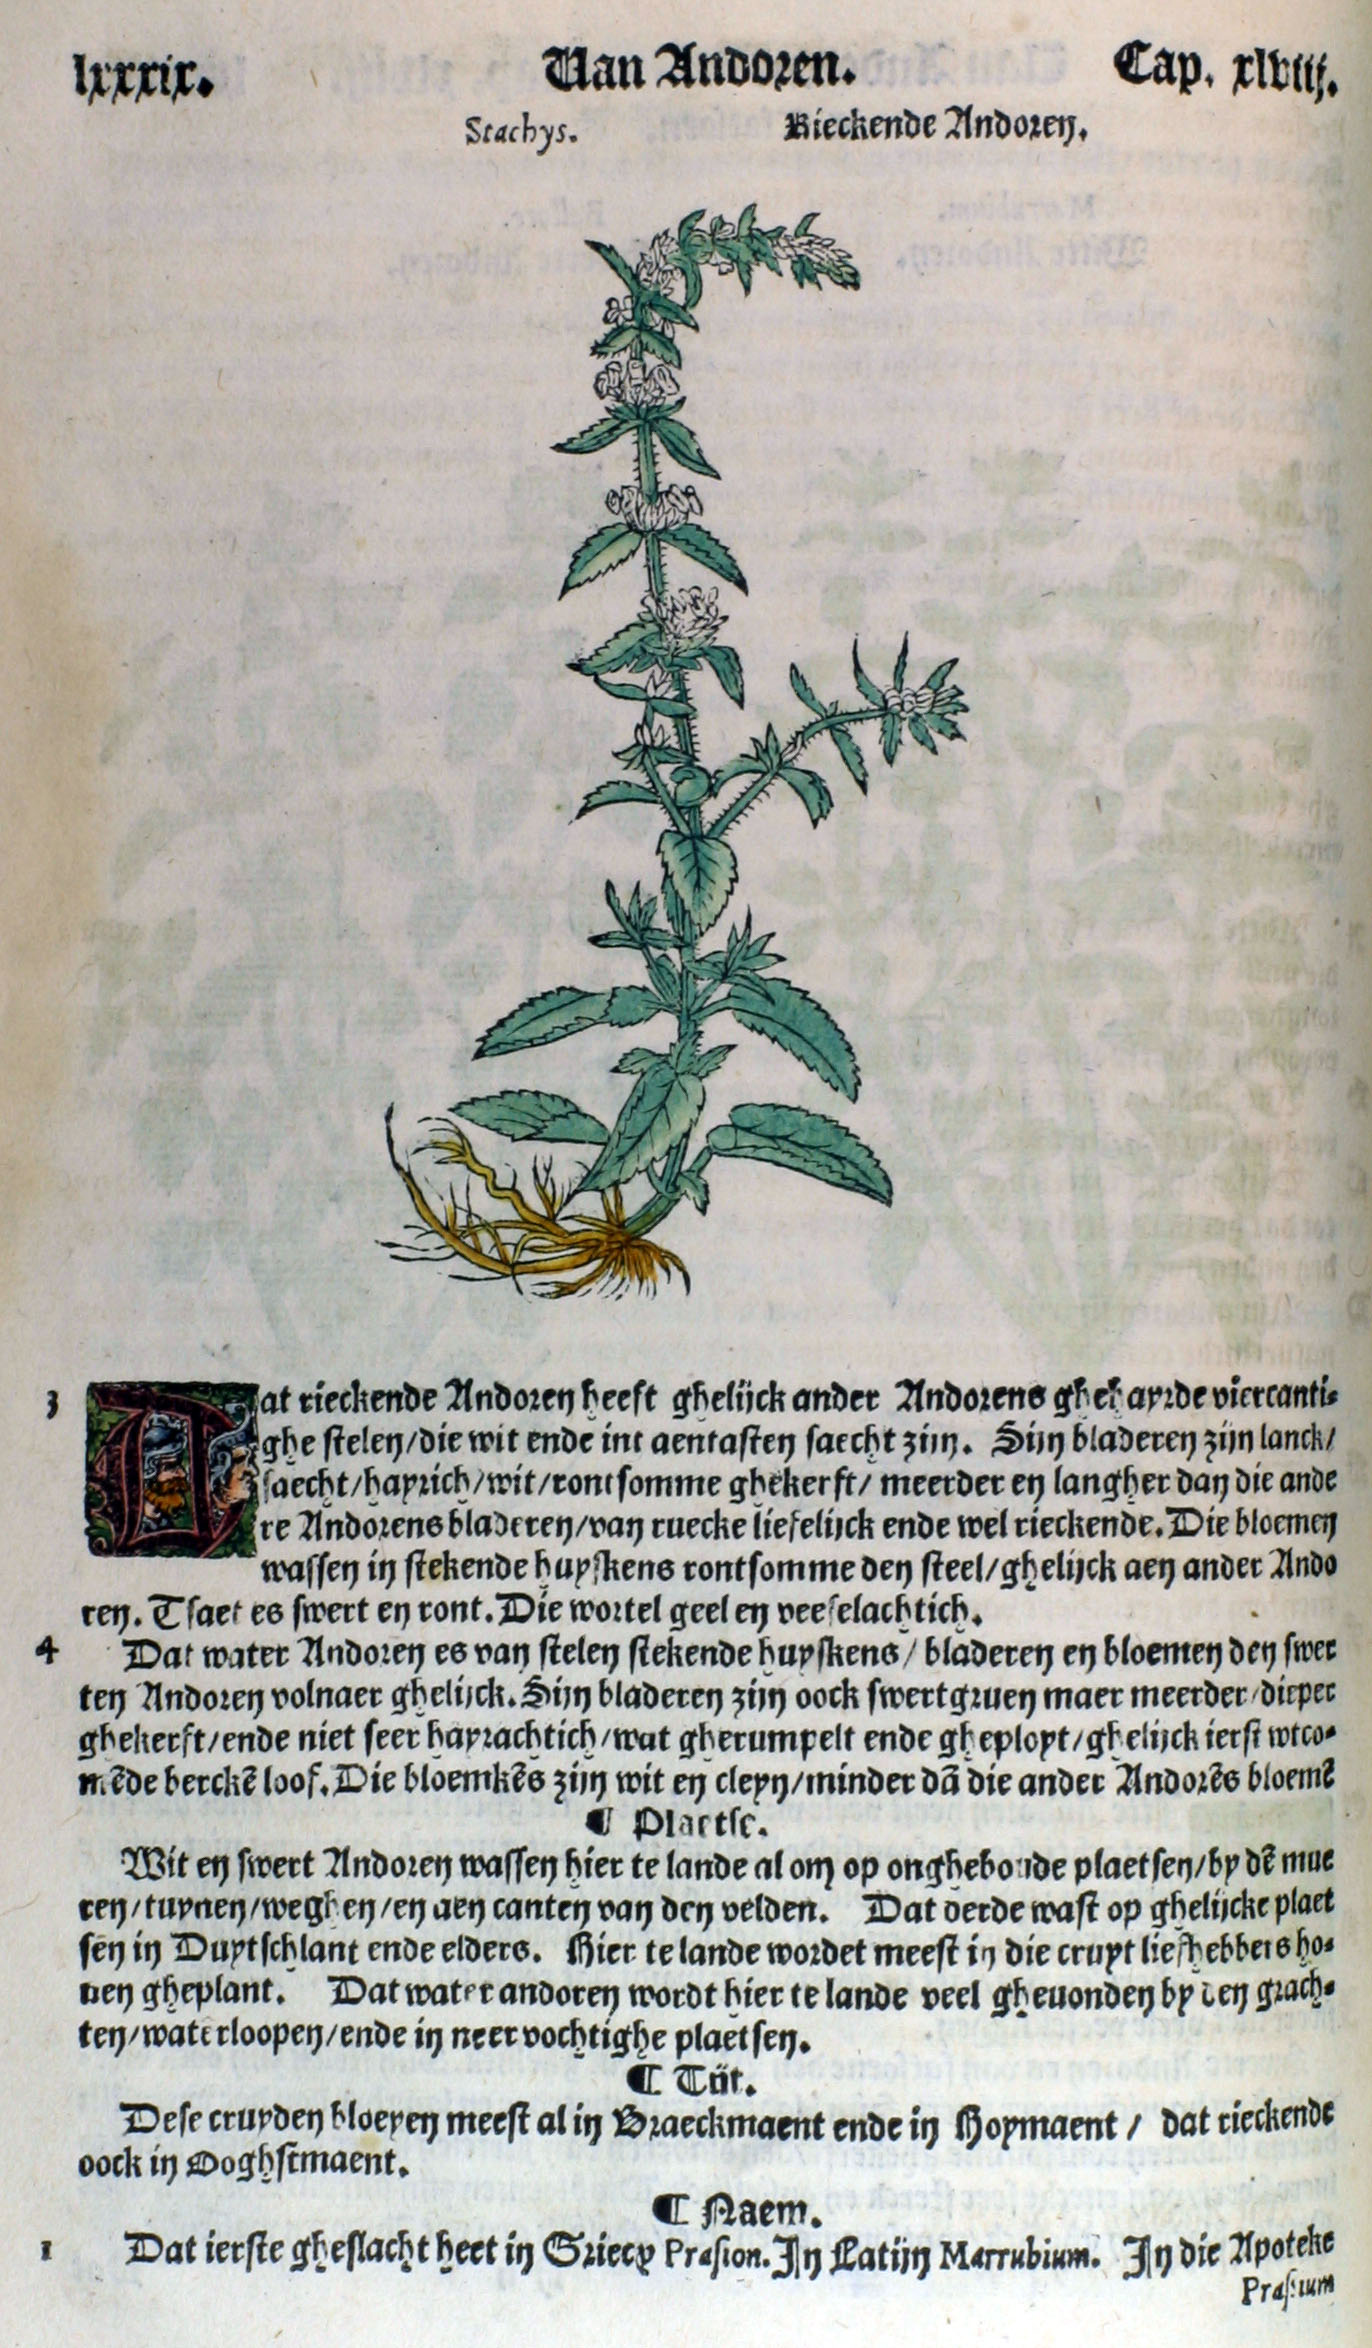 lxxxix. Van Andoren. Cap. xlviij.
Stachys. Rieckende Andoren.
3 Dat rieckende Andoren heeft ghelijck ander Andorens ghehayrde viercanti-
ghe stelen/die wit ende int aentasten saecht zijn. Sijn bladeren zijn lanck/
saecht/hayrich/wit/rontsomme ghekerft/ meerder en langher dan die ande
re Andorens bladeren/van ruecke liefelijck ende wel rieckende. Die bloemen
wassen in stekende huyskens rontsomme den steel/ghelijck aen ander Ando
ren. Tsaet es swert en ront. Die wortel geel en veeselachtich.
4 Dat water Andoren es van stelen stekende huyskens/ bladeren en bloemen den swer
ten Andoren volnaer ghelijck. Sijn bladeren zijn oock swertgruen maer meerder/dieper
ghekerft/ende niet seer hayrachtich/wat gherumpelt ende gheployt/ghelijck ierst wtco-
mēde berckē loof. Die bloemkēs zijn wit en cleyn/minder dā die ander Andorēs bloemē
¶ Plaetse.
Wit en swert Andoren wassen hier te lande al om op onghebonde plaetsen/by dē mue
ren/tuynen/weghen/en aen canten van den velden. Dat derde wast op ghelijcke plaet
sen in Duytschlant ende elders. Hier te lande wordet meest in die cruyt liefhebbers ho-
uen gheplant. Dat water andoren wordt hier te lande veel gheuonden by den grach-
ten/waterloopen/ende in neer vochtighe plaetsen.
¶ Tijt.
Dese cruyden bloeyen meest al in Braeckmaent ende in Hoymaent / dat rieckende
oock in Ooghstmaent.
¶ Naem.
1 Dat ierste gheslacht heet in Griecx Prasion. In Latijn Marrubium. In die Apoteke
Prassium